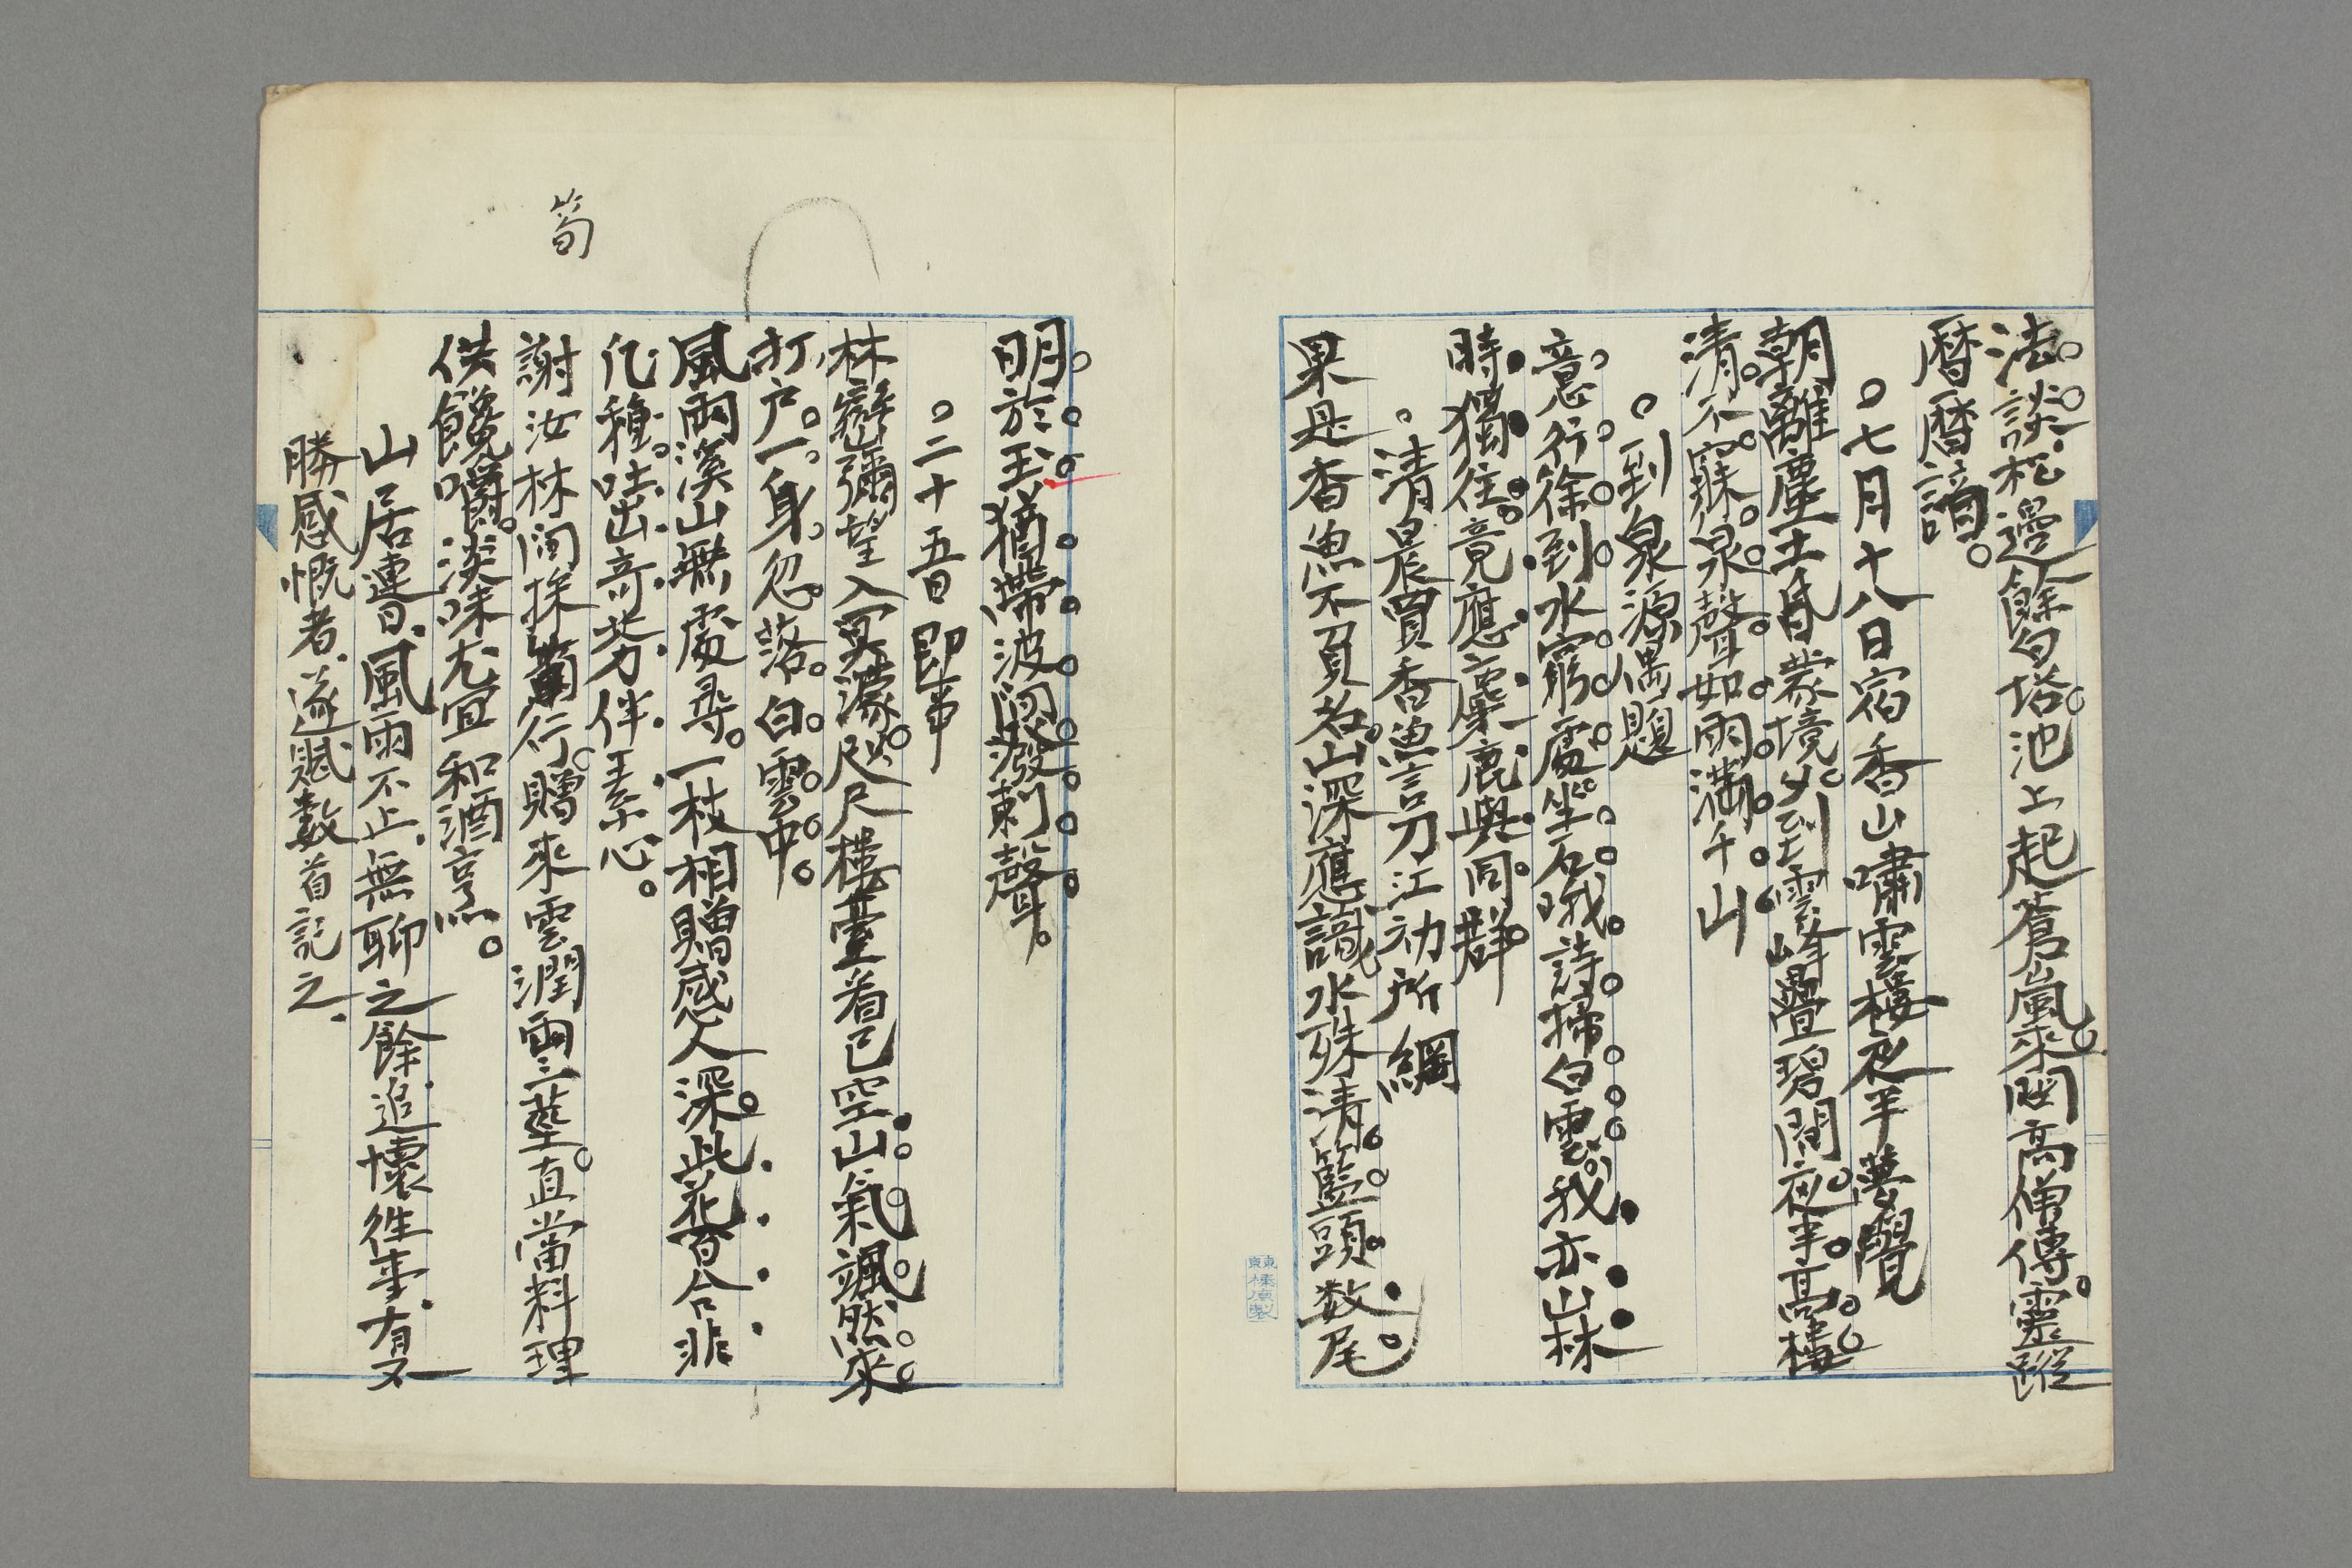 法談。松邊餘白塔。池上起蒼嵐。來閲高僧傳。靈蹤
暦暦諳。
○七月十八日宿香山嘯雲樓夜半夢覺
朝離塵土昏蒙境。夕到雲峰疊碧間。夜半高樓
清不寐。泉聲如雨滿千山
○到泉源偶題
意行徐到水窮處。坐石哦詩掃白雲。我亦山林
時獨往。竟應麋鹿與同群。
○清晨買香魚言刀江初所網
果是香魚不負名。山深應識水殊清。籃頭數尾
明於玉。猶帶波間潑剌聲。
○二十五日即事
林巒彌望入冥濛。咫尺樓臺看已空。山氣颯然來
打戸。一身忽落白雲中。
風雨溪山無處尋。一枝相贈感人深。此花百合非
凡種。吐出奇芬伴素心。
筍
謝汝林間採筍行。贈來雲潤兩三莖。直當料理
供饞嚼。淡味尤宜和酒烹。
山居連日、風雨不止、無聊之餘、追懷往事、有不
勝感慨者、遂賦數首記之、